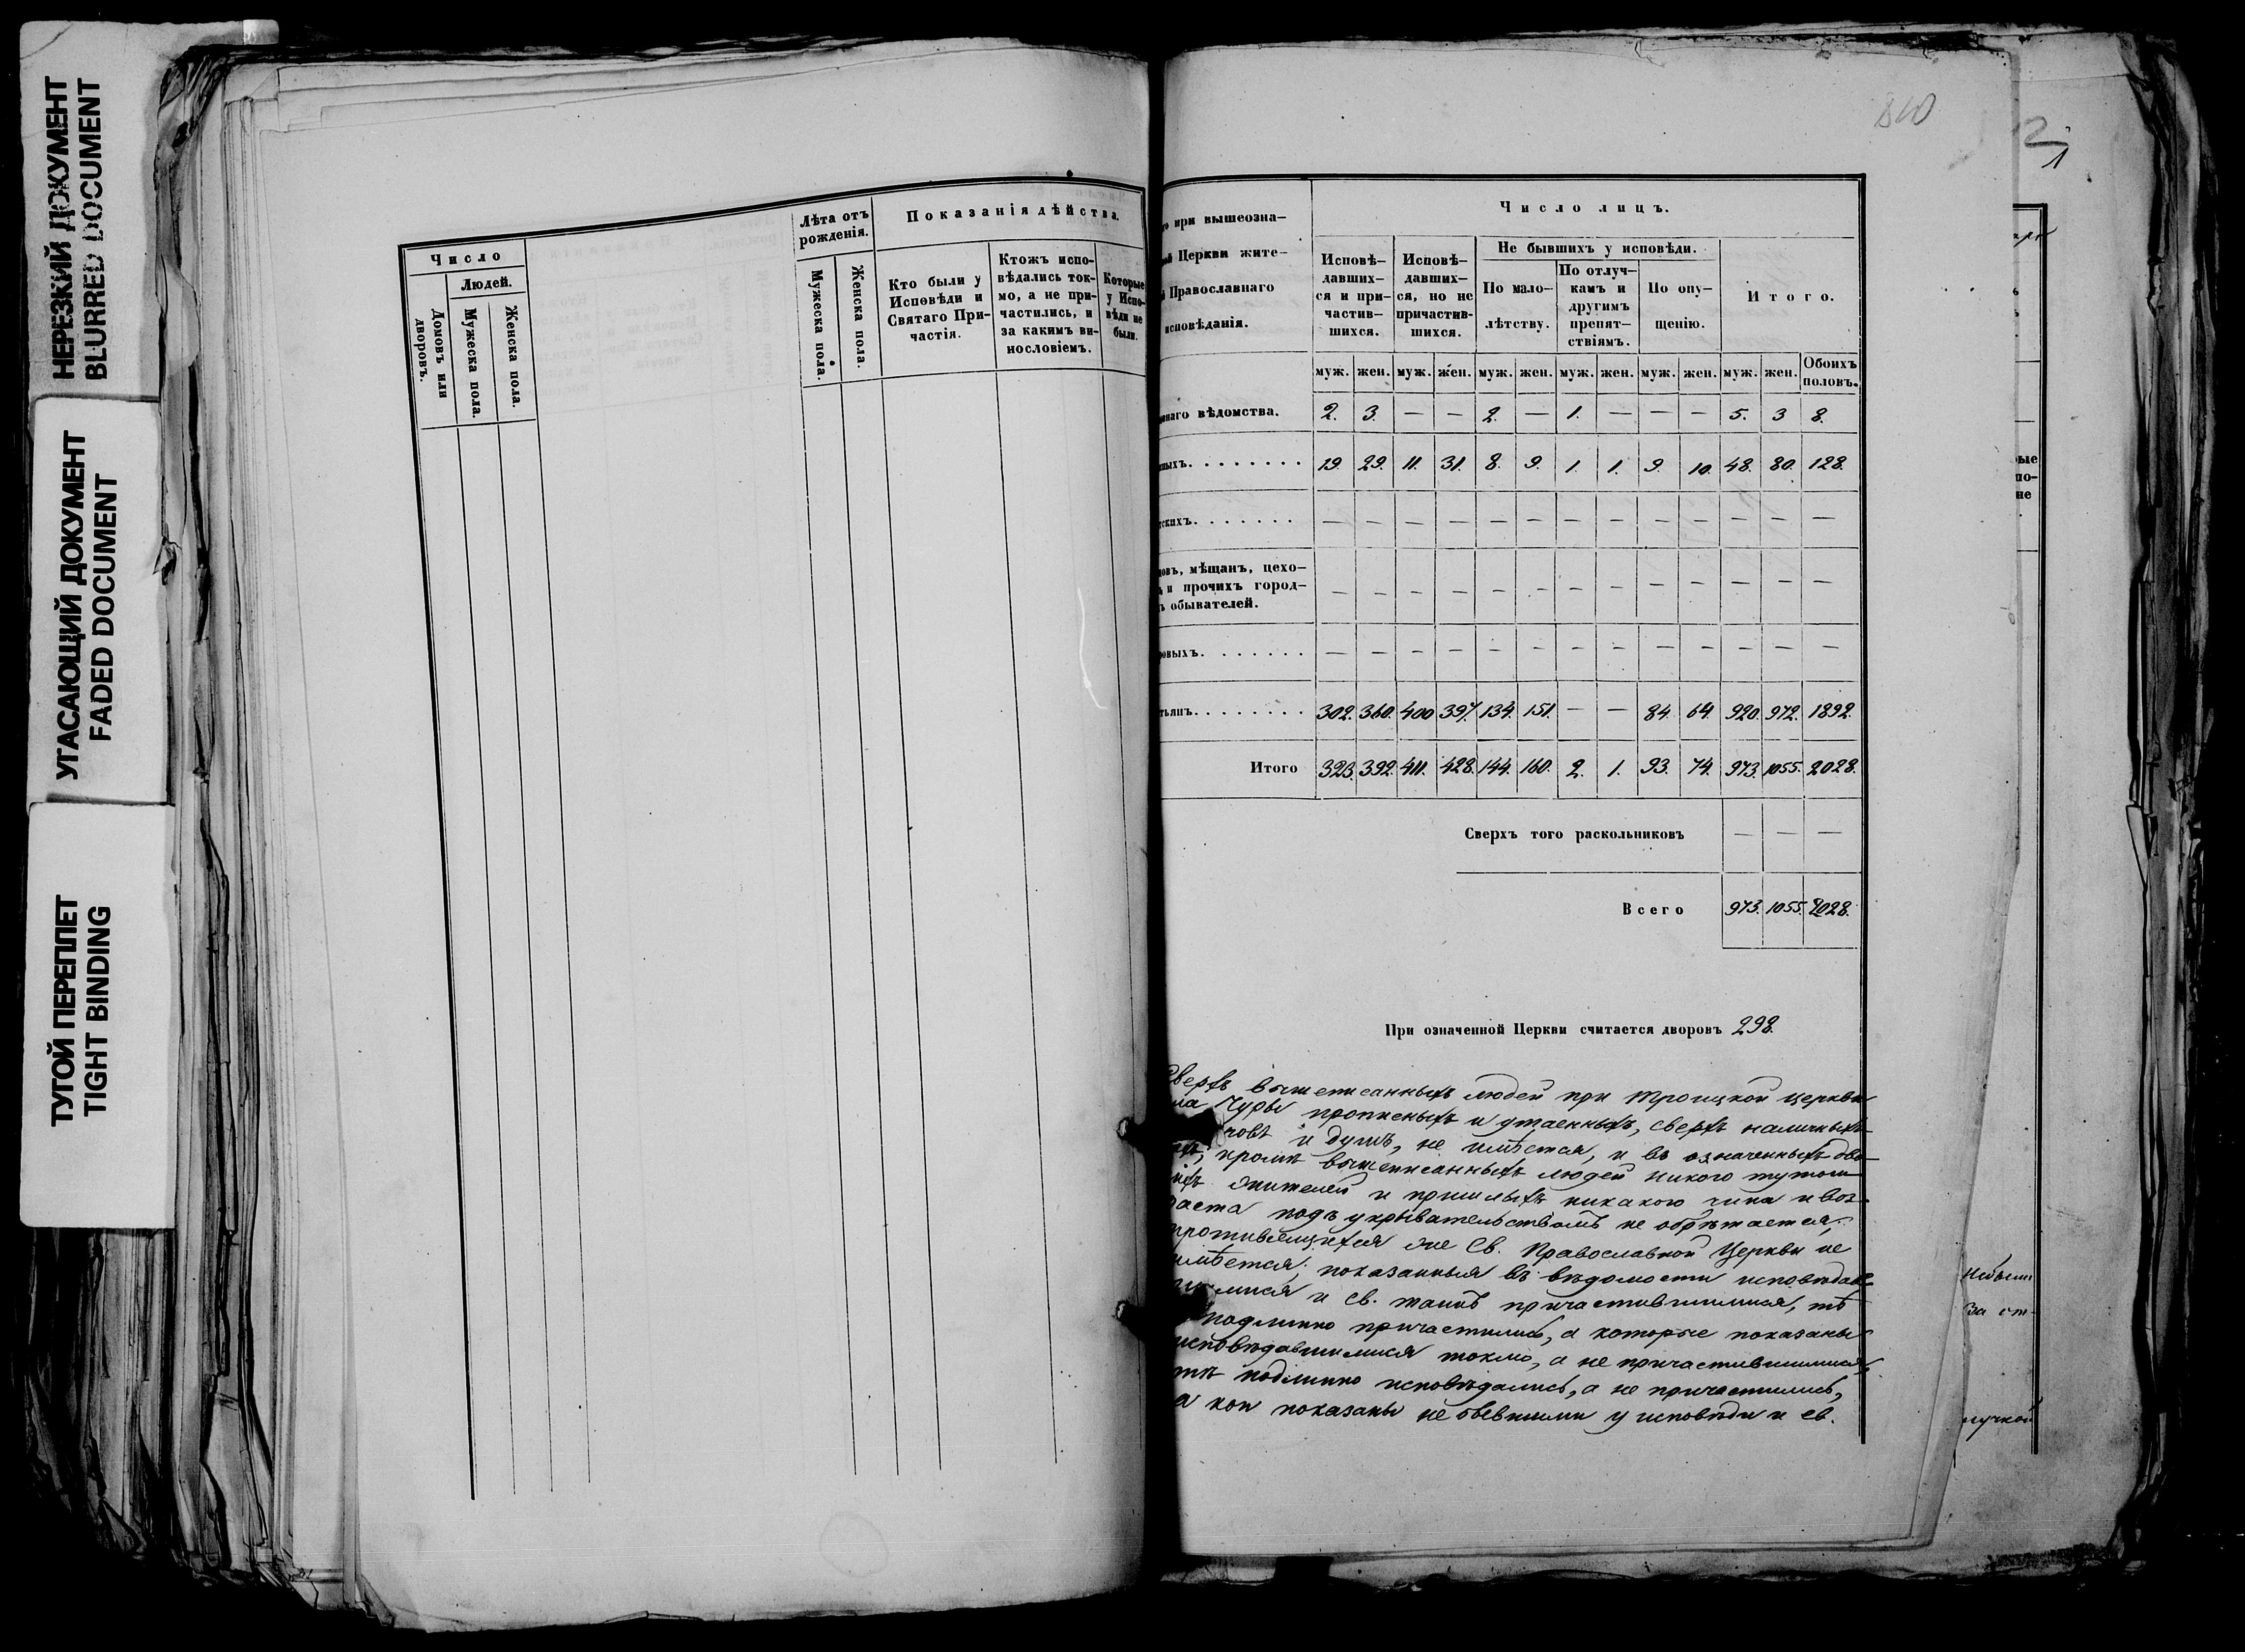 НЕРЕЗКИЙ ДОКУМЕНТ
BLURRED DOCUMENT
УГАСАЮЩИЙ ДОКУМЕНТ
FADED DOCUMENT
ТУГОЙ ПЕРЕПЛЕТ
TIGHT BINDING
Число
Людей.
Домовъ или дворовъ.
Мужеска пола.
Женска пола.
Лѣта отъ рожденія.
Мужеска пола.
Женска пола.
Показанія дѣйства.
Кто были у
Исповѣди и
Святаго При-
частія.
Ктожъ испо-
вѣдались ток-
мо, а не при-
частились, и
за какимъ ви-
нословіемъ.
Которые
у Испо-
вѣди не
были.
при вышеозна-
Церкви жите-
Православнаго
исповѣданія.
Число лицъ.
Исповѣ-
давших-
ся и при-
частив-
шихся.
Исповѣ-
давших-
ся, но не
причастив-
шихся.
Не бывшихъ у исповѣди.
По мало-
лѣтству.
По отлуч-
камъ и
другимъ
препят-
ствіямъ.
По опу-
щенію.
Итого.
муж. жен. муж. жен. муж. жен. муж. жен. муж. жен. муж. жен. Обоихъ половъ.
наго вѣдомства. 2. 3. — — 2. — 1. — — — 5. 3 8.
ныхъ. . . . . . . . 19. 29. 11. 31. 8. 9. 1. 1. 9. 10. 48. 80. 128.
скихъ. . . . . . . — — — — — — — — — — — — —
овъ, мѣщанъ, цехо-
и прочихъ город-
обывателей. — — — — — — — — — — — — —
овыхъ. . . . . . . — — — — — — — — — — — — —
тьянъ. . . . . . . . . 302. 360. 400 397. 134. 151. — — 84. 64. 920. 972. 1892.
Итого 323. 392. 411. 428. 144. 160. 2. 1. 93. 74. 973. 1055. 2028.
Сверхъ того раскольниковъ — — —
Всего 973. 1055. 2028.
При означенной Церкви считается дворовъ 298.
Сверхъ вышеписанныхъ людей при Троицкой церкви
ла Чуры прописныхъ и утаенныхъ, сверхъ наличныхъ
и душъ, не имѣется, и въ означенныхъ дво-
кромѣ вышеписанныхъ людей никого тутош-
жителей и пришлыхъ никакого чина и воз-
раста подъ укрывательствомъ не обрѣтается;
противящихся же Св. Православной Церкви не
имѣется; показанныя въ вѣдомости исповѣдав-
шимися и св. таинъ причастившимися, тѣ
подлинно причастились, а которые показаны
исповѣдавшимися токмо, а не причастившимися,
тѣ подлинно исповѣдались, а не причастились,
а кои показаны не бывшими у исповѣди и св.
1
ые
по-
не
За от-